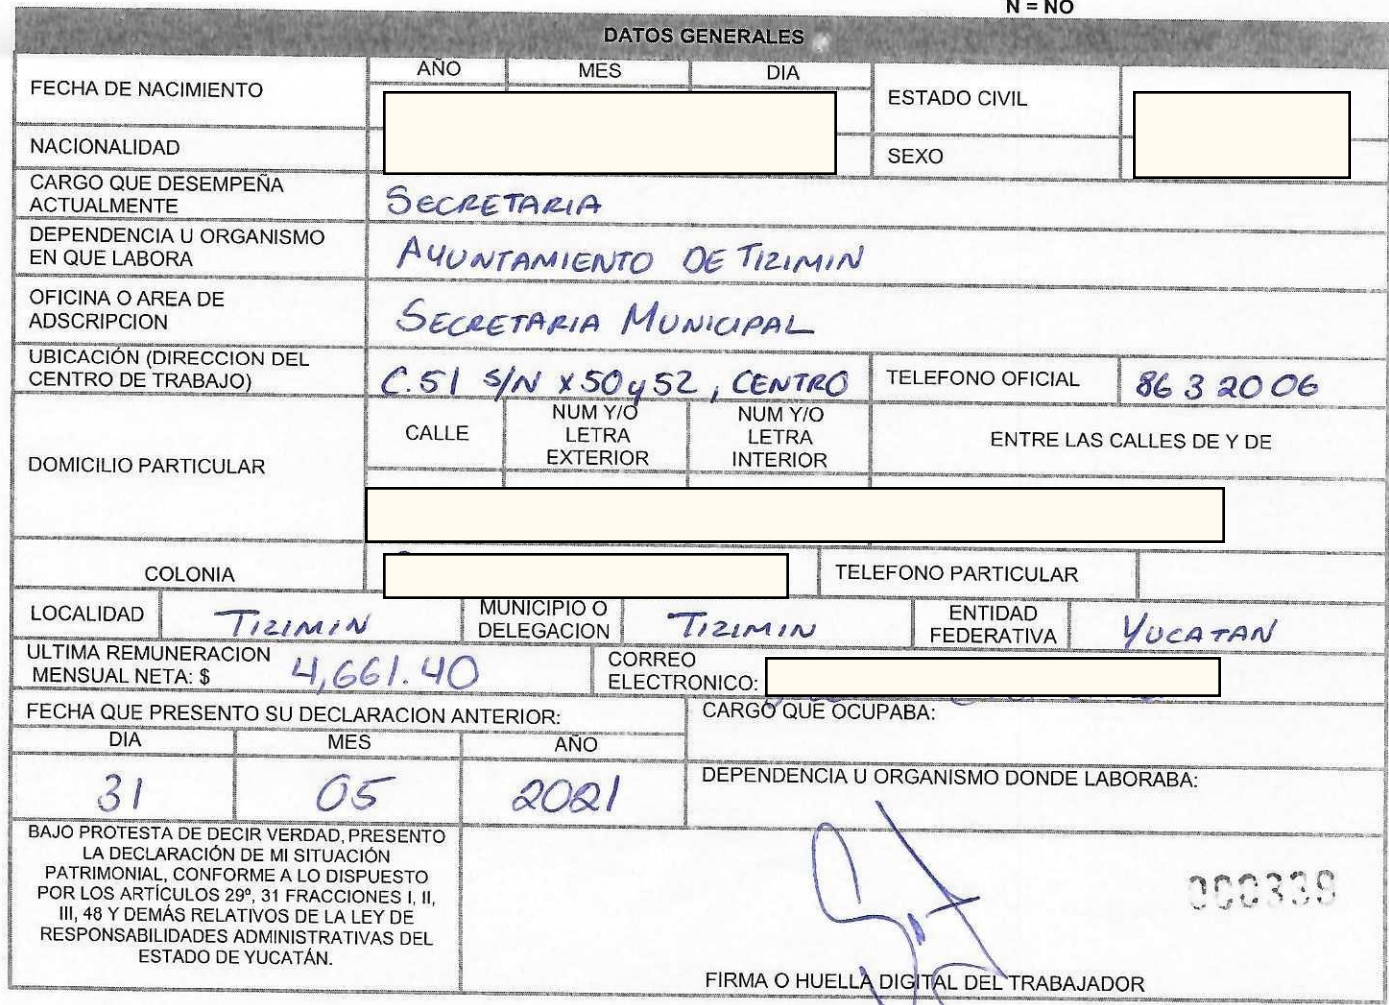 N = NO
DATOS GENERALES
FECHA DE NACIMIENTO
AÑO MES DIA
ESTADO CIVIL
NACIONALIDAD
SEXO
CARGO QUE DESEMPEÑA
ACTUALMENTE
SECRETARIA
DEPENDENCIA U ORGANISMO
EN QUE LABORA
AYUNTAMIENTO DE TIZIMIN
OFICINA O AREA DE
ADSCRIPCION
SECRETARIA MUNICIPAL
UBICACIÓN (DIRECCION DEL
CENTRO DE TRABAJO)
C.51 S/N x 50 y 52, CENTRO
TELEFONO OFICIAL
86 3 20 06
DOMICILIO PARTICULAR
CALLE
NUM Y/O
LETRA
EXTERIOR
NUM Y/O
LETRA
INTERIOR
ENTRE LAS CALLES DE Y DE
COLONIA
TELEFONO PARTICULAR
LOCALIDAD
TIZIMIN
MUNICIPIO O
DELEGACION
TIZIMIN
ENTIDAD
FEDERATIVA
YUCATAN
ULTIMA REMUNERACION
MENSUAL NETA: $
4,661.40
CORREO
ELECTRONICO:
FECHA QUE PRESENTO SU DECLARACION ANTERIOR:
CARGO QUE OCUPABA:
DIA MES AÑO
31 05 2021
DEPENDENCIA U ORGANISMO DONDE LABORABA:
BAJO PROTESTA DE DECIR VERDAD, PRESENTO
LA DECLARACIÓN DE MI SITUACIÓN
PATRIMONIAL, CONFORME A LO DISPUESTO
POR LOS ARTÍCULOS 29º, 31 FRACCIONES I, II,
III, 48 Y DEMÁS RELATIVOS DE LA LEY DE
RESPONSABILIDADES ADMINISTRATIVAS DEL
ESTADO DE YUCATÁN.
000339
FIRMA O HUELLA DIGITAL DEL TRABAJADOR